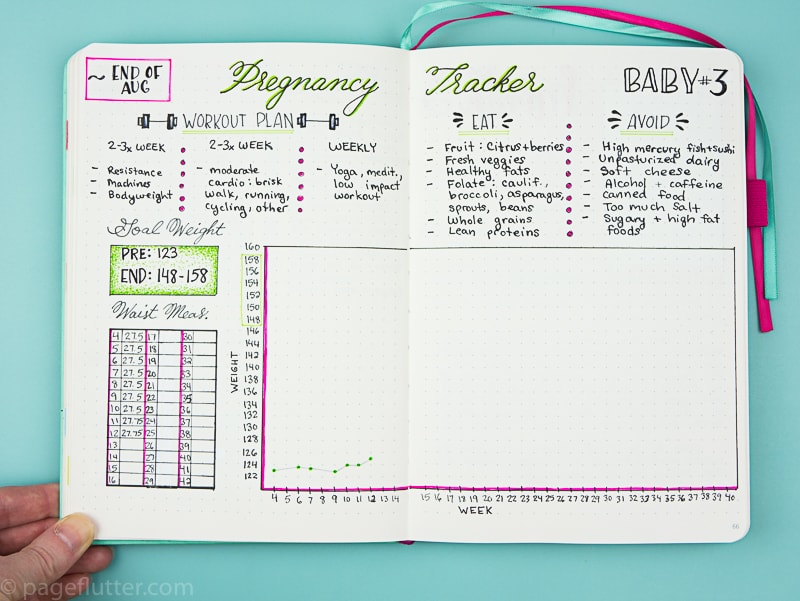 ~ END OF
AUG
Pregnancy Tracker
BABY #3
WORKOUT PLAN
2-3x WEEK
- Resistance
- Machines
- Bodyweight
2-3x WEEK
- moderate
cardio: brisk
walk, running,
cycling, other
WEEKLY
- Yoga, medit.,
low impact
workout
EAT
- Fruit: Citrus + berries
- Fresh veggies
- Healthy fats
- Folate: caulif.,
broccoli, asparagus,
sprouts, beans
- Whole grains
- Lean proteins
AVOID
- High mercury fish + sushi
- Unpasturized dairy
- Soft cheese
- Alcohol + caffeine
- canned food
- Too much salt
- Sugary + high fat
foods
Goal Weight
PRE: 123
END: 148-158
Waist Meas.
4 27.5 17 30
5 27.5 18 31
6 27.5 19 32
7 27.5 20 33
8 27.5 21 34
9 27.5 22 35
10 27.5 23 36
11 27.75 24 37
12 27.75 25 38
13 26 39
14 27 40
15 28 41
16 29 42
WEIGHT
160
158
156
154
152
150
148
146
144
142
140
138
136
134
132
130
128
126
124
122
4 5 6 7 8 9 10 11 12 13 14 15 16 17 18 19 20 21 22 23 24 25 26 27 28 29 30 31 32 33 34 35 36 37 38 39 40
WEEK
56
© pageflutter.com